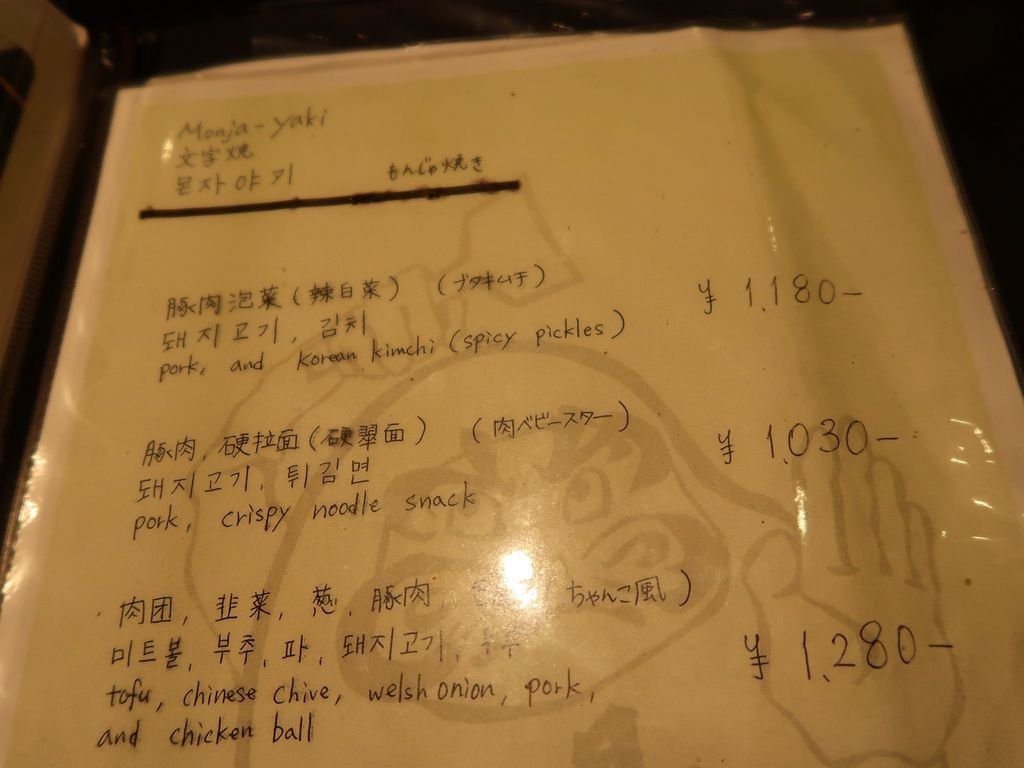 Monja-yaki
文字焼
몬자야키 もんじゃ焼き
豚肉泡菜(辣白菜) (ブタキムチ) ¥1,180-
돼지고기, 김치
pork, and korean kimchi (spicy pickles)
豚肉,硬拉面(硬翠面) (肉ベビースター) ¥1,030-
돼지고기, 튀김면
pork, crispy noodle snack
肉团, 韭菜, 葱, 豚肉, ちゃんこ風) ¥1,280-
미트볼, 부추, 파, 돼지고기, 두부
tofu, chinese chive, welsh onion, pork,
and chicken ball